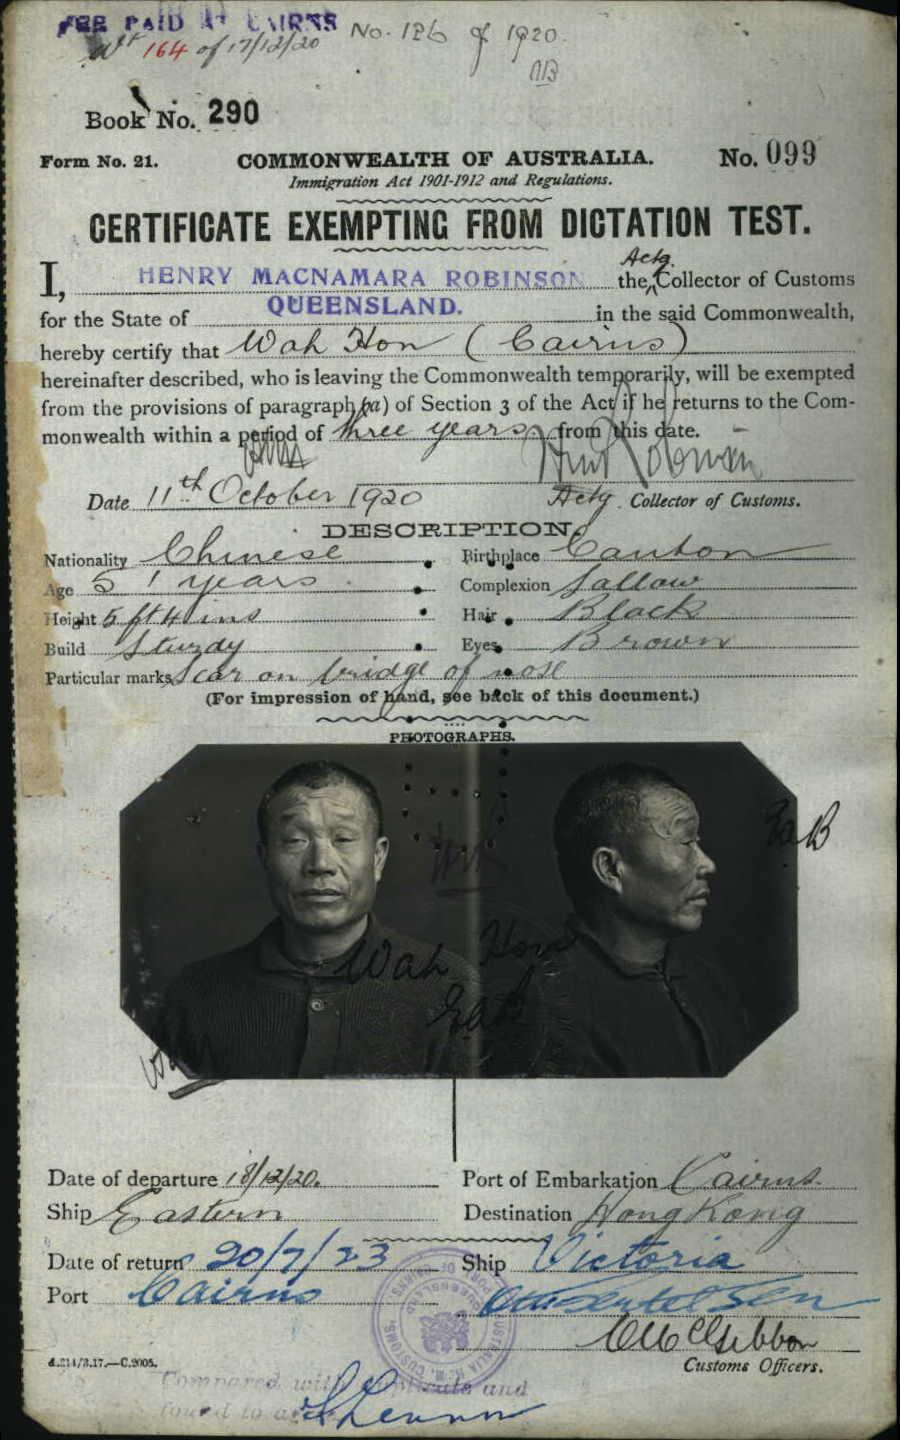 FEE PAID AT CAIRNS
No. 126 of 1920.
164 of 17/12/20
Book No. 290
Form No. 21.
COMMONWEALTH OF AUSTRALIA.
No. 099
Immigration Act 1901-1912 and Regulations.
CERTIFICATE EXEMPTING FROM DICTATION TEST.
I, HENRY MACNAMARA ROBINSON the Actg. Collector of Customs
for the State of QUEENSLAND. in the said Commonwealth,
hereby certify that Wah Hon (Cairns)
hereinafter described, who is leaving the Commonwealth temporarily, will be exempted
from the provisions of paragraph (a) of Section 3 of the Act if he returns to the Com-
monwealth within a period of three years from this date.
Date 11th October 1920
Actg. Collector of Customs.
DESCRIPTION.
Nationality Chinese Birthplace Canton
Age 51 years Complexion Sallow
Height 5 ft 4 ins Hair Black
Build Sturdy Eyes Brown
Particular marks Scar on bridge of nose
(For impression of hand, see back of this document.)
PHOTOGRAPHS.
Wah Hon
Date of departure 18/12/20. Port of Embarkation Cairns.
Ship Eastern Destination Hong Kong
Date of return 20/7/23 Ship Victoria
Port Cairns
Customs Officers.
d.214/3.17.—C.2005.
Compared with duplicate and
found to